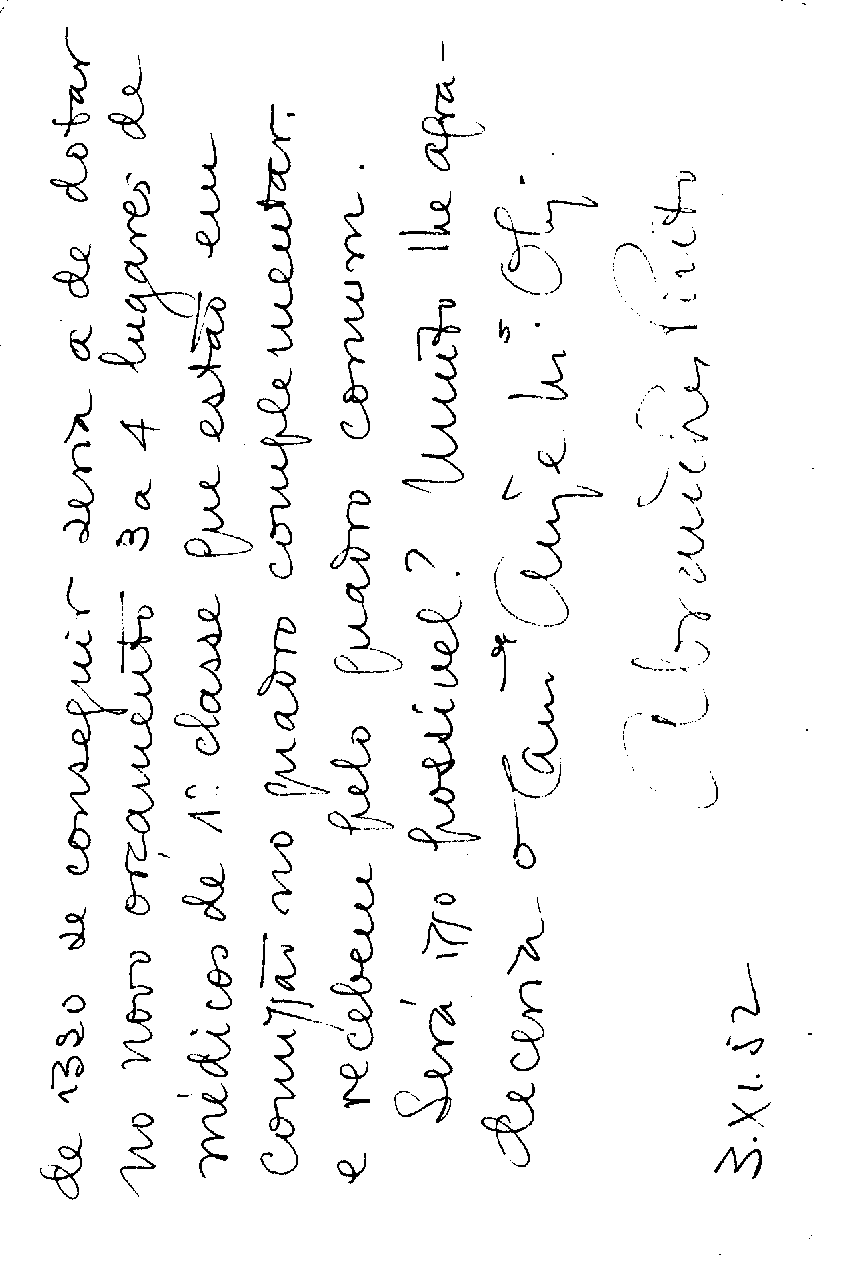 de isso se conseguir seria a de dotar
no novo orçamento 3 a 4 lugares de
médicos de 1ª classe que estão em
comissão no quadro complementar.
e recebem pelo quadro comum.
Será isso possivel? Muito lhe agra-
deceria o Cam.ª Amº e Mº. Obg.
Abranches Pinto
3.XI.52